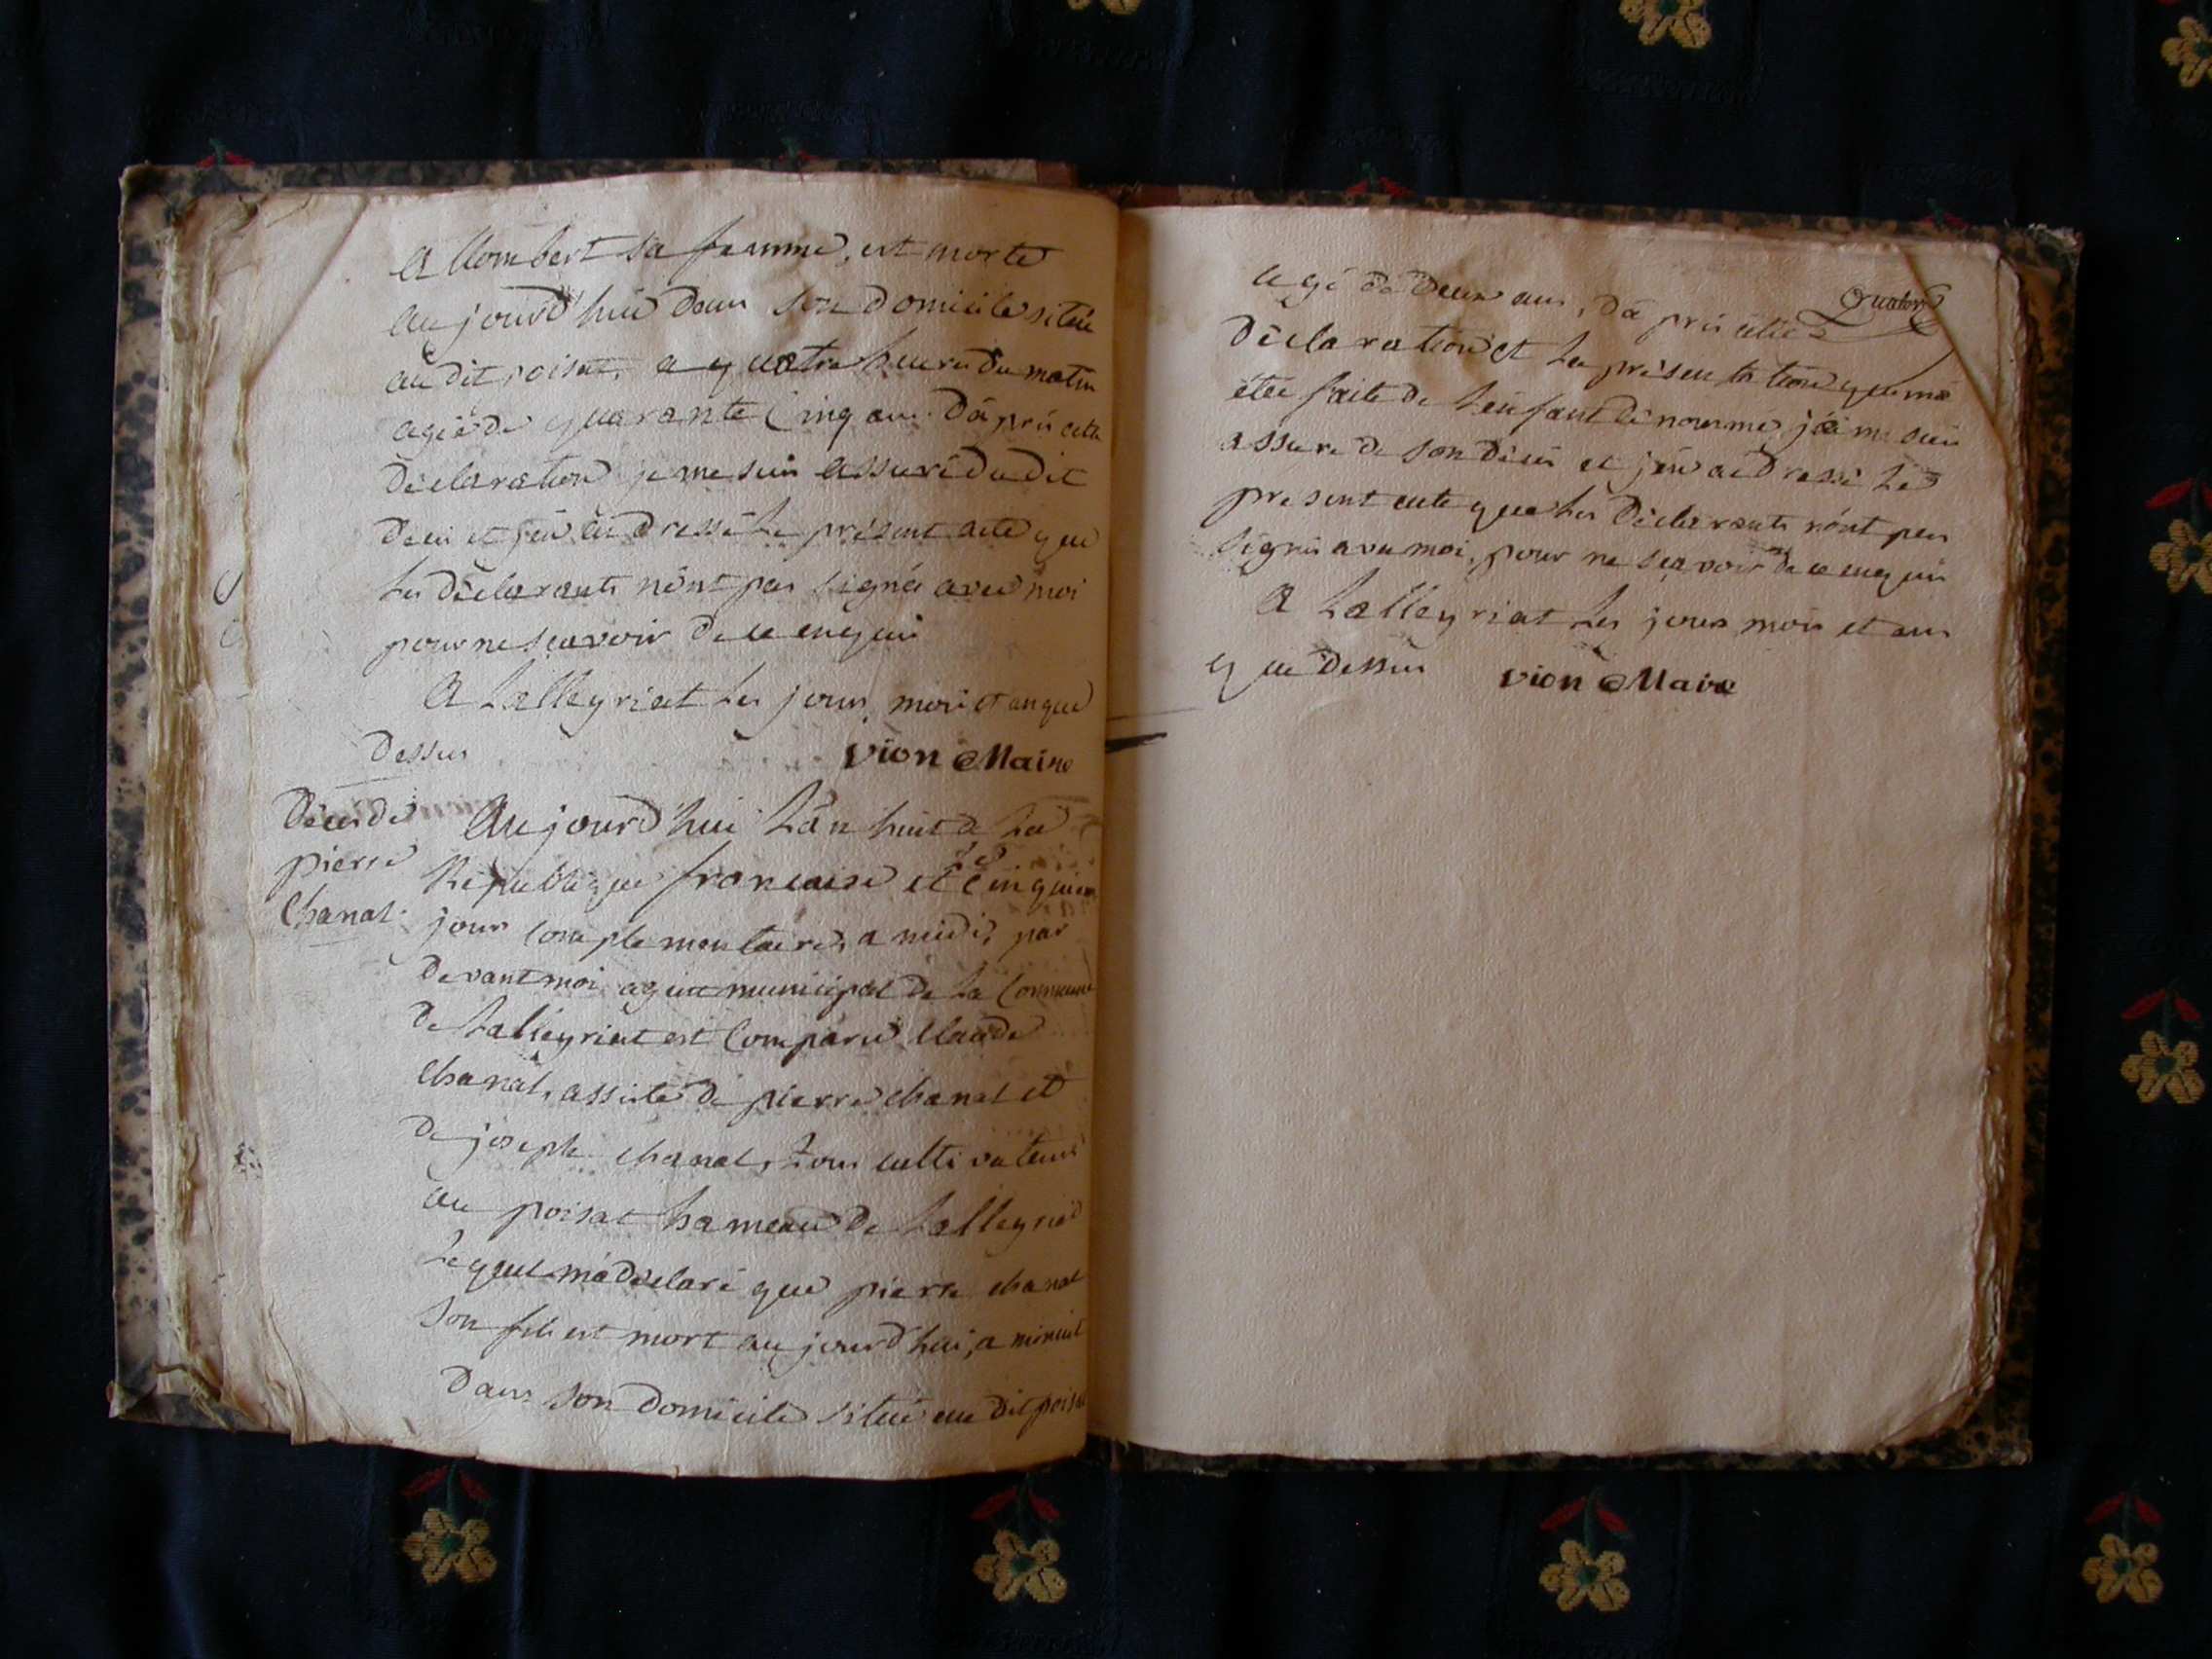 Allombert sa femme, est morte
aujourd'hui dans son domicile situé
au dit poisat, a quatre heures du matin
agée de quarante Cinq ans. d'a près cette
déclaration je me suis assuré du dit
deces et j'en ai dressé le présent acte que
les déclarants n'ont pas signés avec moi
pour ne scavoir de ce enquis
A Lalleyriat les jours, mois et an que
dessus
vion Maire
Déces de
pierre
Chanal.
Aujourd'hui L'an huit de La
République francaise et le Cinquiem
jour complementaire, a midi, par
devant moi agent municipal de La Commune
de Lalleyriat est Comparu Claude
chanal, assisté de pierre chanal et
de joseph chanal, tous cultivateurs
au poisat hameau de Lalleyriat
Lequel m'a déclaré que pierre chanal
son fils est mort aujourd'hui, a minuit
dans son domicile situé au dit poisat
quatorz
agé de deux ans, d'a près cette
déclaration et La présentation que m'a
étée faite de L'enfant dénommé, je me suis
assuré de son déces et j'en ai dressé Le
present acte que Les déclarants n'ont pas
signés avec moi, pour ne scavoir de ce enquis
A Lalleyriat Les jours mois et ans
que dessus
vion Maire